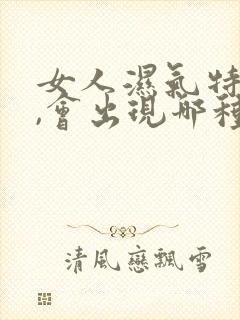 女人濕氣特
,會出現哪種
清風戀飄雪